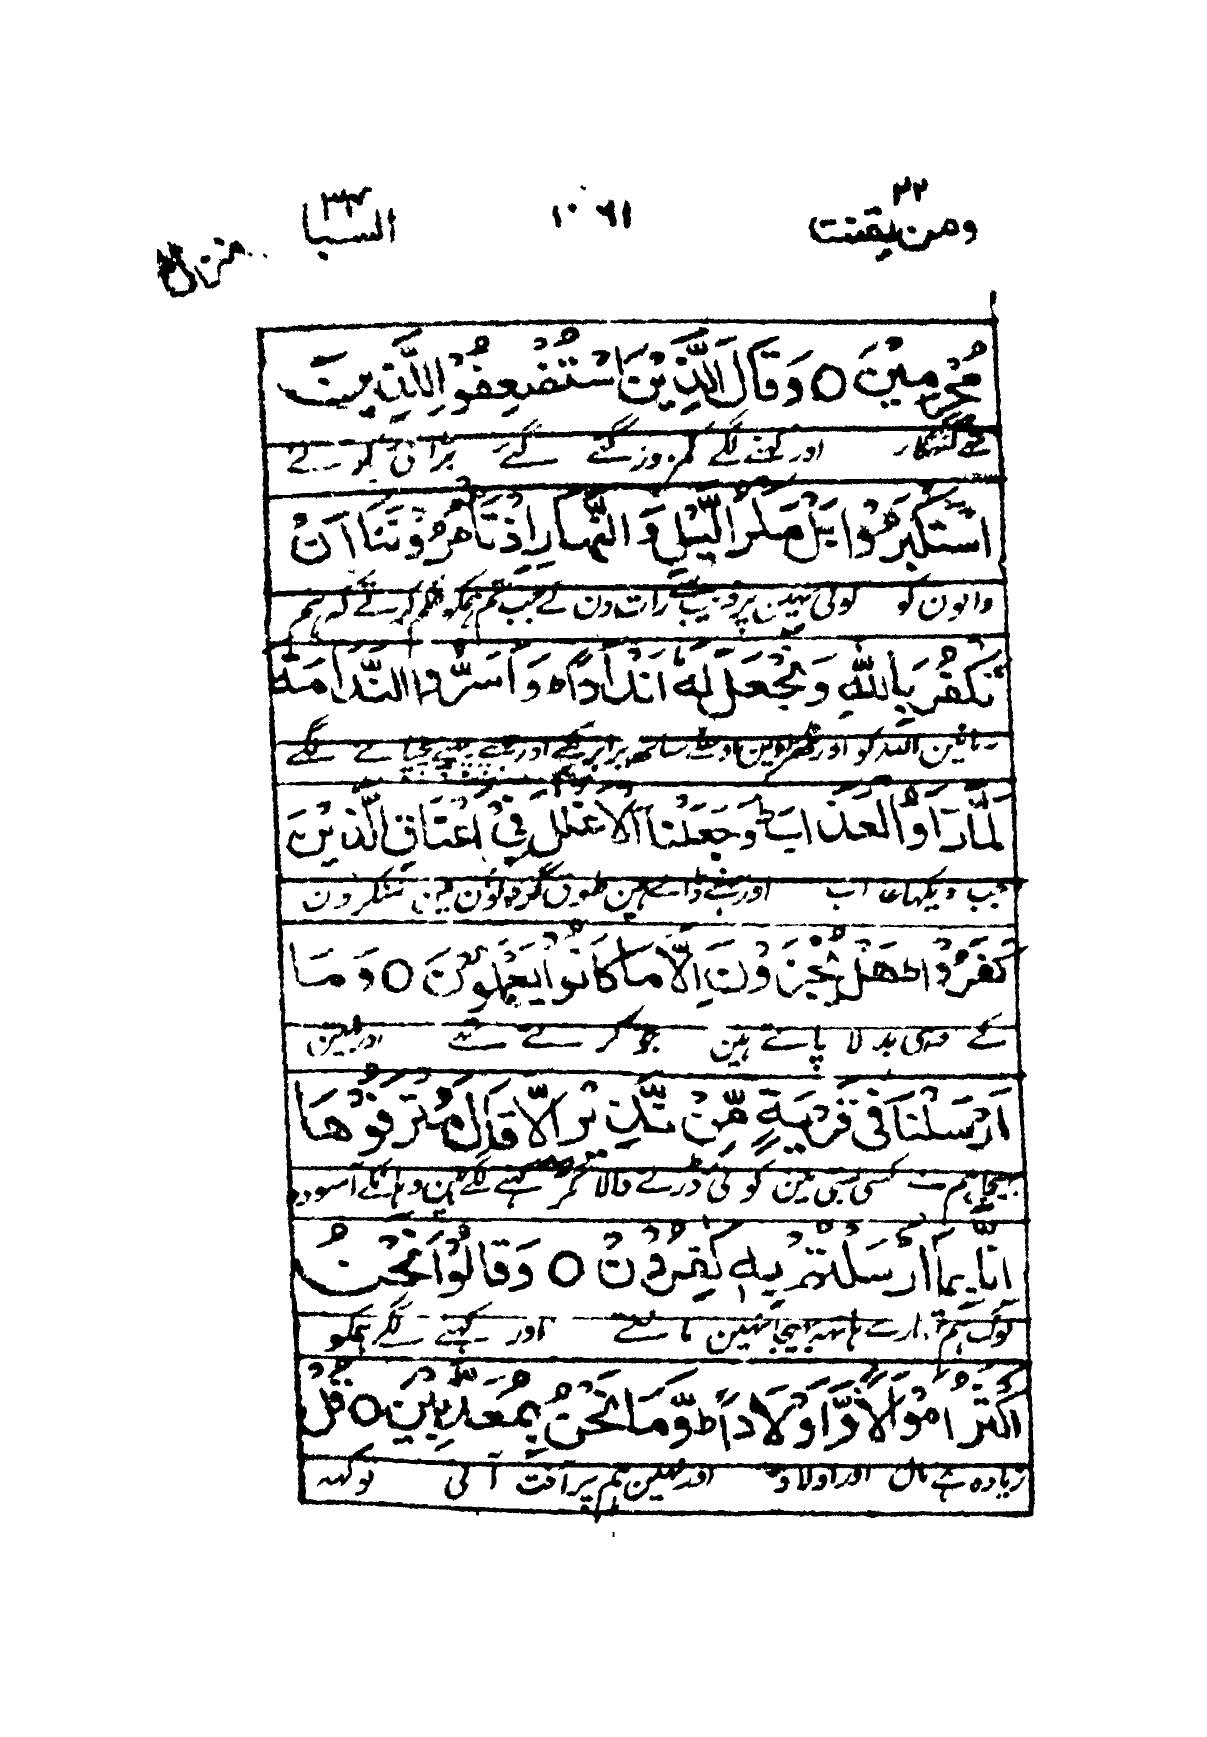 ومن یقنت ۲۲ ۱۰۶۱ السبا ۳۴
منزل
مُجْرِمِيْنَ ○ وَقَالَ الَّذِيْنَ اسْتُضْعِفُوْا لِلَّذِيْنَ
تھے گنہگار اور کہنے لگے کمزور گنے گئے بڑائی کرنے
اسْتَكْبَرُوْا بَلْ مَكْرُ الَّيْلِ وَ النَّهَارِ اِذْ تَاْمُرُوْنَنَا اَنْ
والون کو کوئی نہین پر فریب سے رات دن کے جب تم ہمکو حکم کرتے کہ ہم
نَّكْفُرَ بِاللّٰهِ وَ نَجْعَلَ لَهٗۤ اَنْدَادًا ط وَ اَسَرُّوا النَّدَامَةَ
نہ مانین اللہ کو اور ٹھہراوین اوسکے ساتھ برابر کے اور چھپے چھپے پچتانے لگے
لَمَّا رَاَوُا الْعَذَابَ ط وَ جَعَلْنَا الْاَغْلٰلَ فِيْۤ اَعْنَاقِ الَّذِيْنَ
جب دیکھا عذاب اور ہمنے ڈالے ہین طوق گردنون مین منکرون
كَفَرُوْا ط هَلْ يُجْزَوْنَ اِلَّا مَا كَانُوْا يَعْمَلُوْنَ ○ وَ مَاۤ
کے وہی بدلا پاتے ہین جو کرتے تھے اور نہین
اَرْسَلْنَا فِيْ قَرْيَةٍ مِّنْ نَّذِيْرٍ اِلَّا قَالَ مُتْرَفُوْهَاۤ
بھیجا ہم نے کسی بستی مین کوئی ڈرانے والا مگر کہنے لگے ہین وہانکے آسودہ
اِنَّا بِمَاۤ اُرْسِلْتُمْ بِهٖ كٰفِرُوْنَ ○ وَ قَالُوْا نَحْنُ
لوگ ہم تمہارے ہاتھ بھیجا نہین مانتے اور کہنے لگے ہمکو
اَكْثَرُ اَمْوَالًا وَّ اَوْلَادًا ط وَّ مَا نَحْنُ بِمُعَذَّبِيْنَ ○ قُلْ
زیادہ ہے مال اور اولاد اور نہین ہم پر آفت آنی تو کہہ